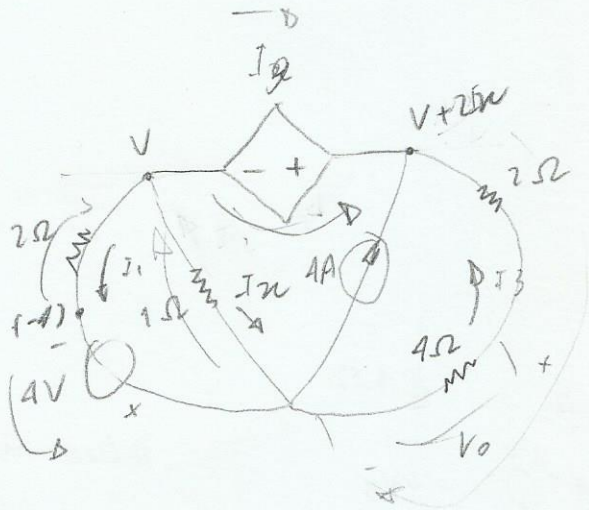 V
V + 2Ix
- +
2Ω
2Ω
I1
1Ω
Ix
4A
I3
(-4)
4Ω
-
+
4V
x
Vo
-